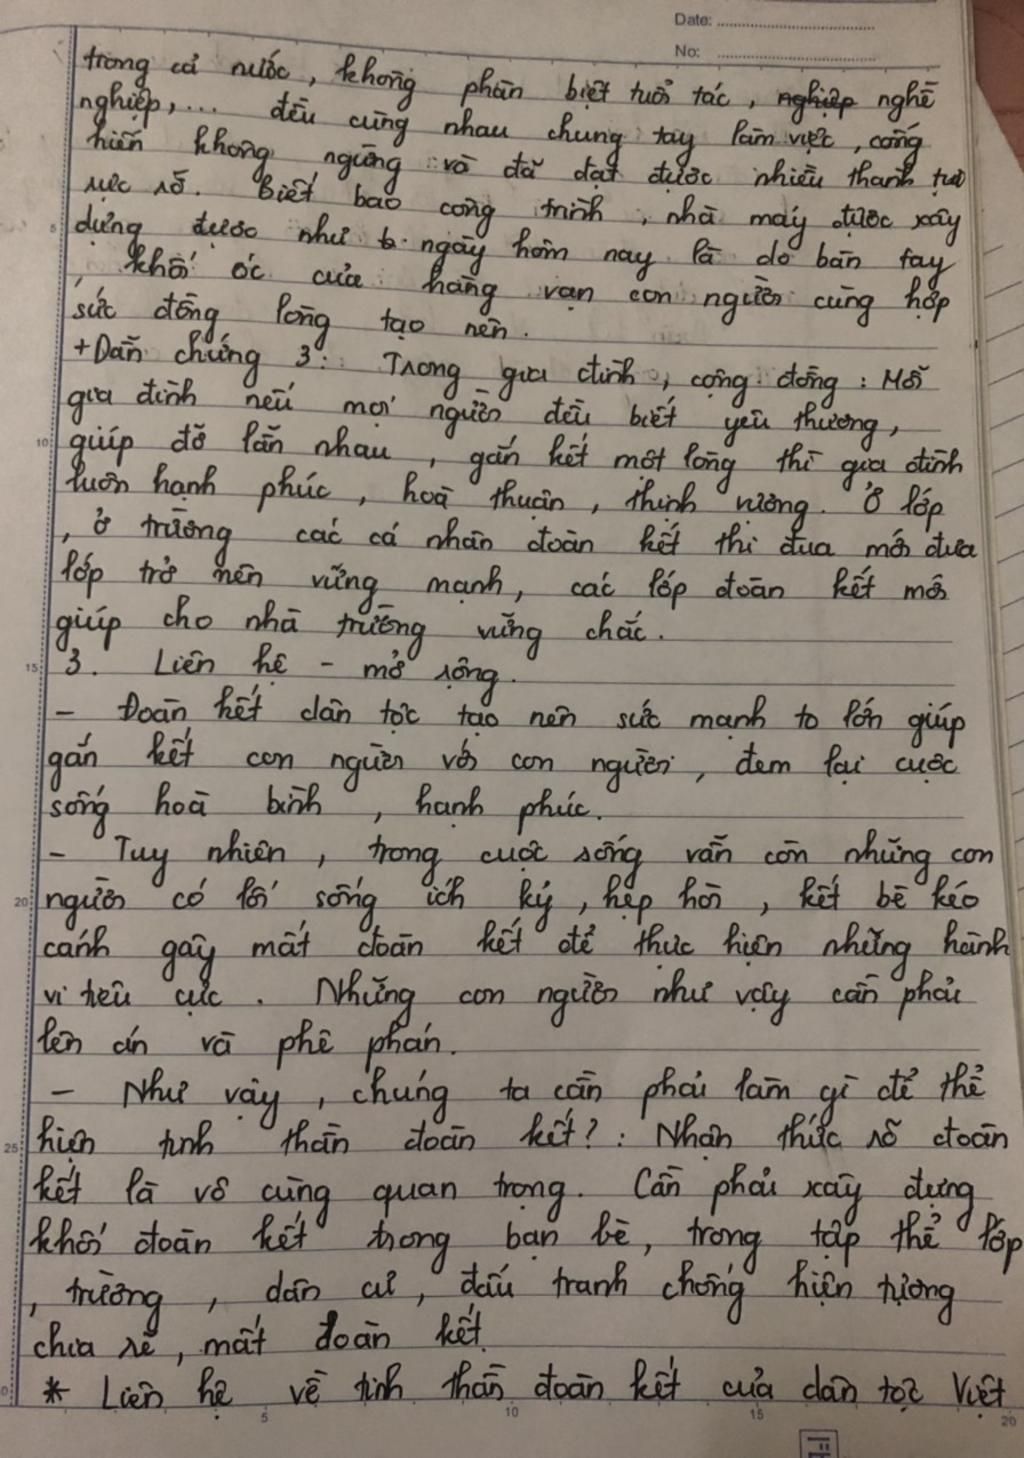 Date:
No:
trong cả nước, không phân biệt tuổi tác, nghiệp nghề
nghiệp,... đều cùng nhau chung tay làm việc, cống
hiến không ngừng và đã đạt được nhiều thành tựu
rực rỡ. Biết bao công trình, nhà máy được xây
dựng được như ngày hôm nay là do bàn tay
, khối óc của hàng vạn con người cùng hợp
sức đồng lòng tạo nên.
+Dẫn chứng 3: Trong gia đình, cộng đồng: Mỗi
gia đình nếu mọi người đều biết yêu thương,
10 giúp đỡ lẫn nhau, gắn kết một lòng thì gia đình
luôn hạnh phúc, hoà thuận, thịnh vượng. Ở lớp
, ở trường các cá nhân đoàn kết thi đua mới đưa
lớp trở nên vững mạnh, các lớp đoàn kết mới
giúp cho nhà trường vững chắc.
15 3. Liên hệ - mở rộng.
- Đoàn kết dân tộc tạo nên sức mạnh to lớn giúp
gắn kết con người với con người, đem lại cuộc
sống hoà bình, hạnh phúc.
- Tuy nhiên, trong cuộc sống vẫn còn những con
20 người có lối sống ích kỷ, hẹp hòi, kết bè kéo
cánh gây mất đoàn kết để thực hiện những hành
vi tiêu cực. Những con người như vậy cần phải
lên án và phê phán.
- Như vậy, chúng ta cần phải làm gì để thể
25 hiện tinh thần đoàn kết?: Nhận thức rõ đoàn
kết là vô cùng quan trọng. Cần phải xây dựng
khối đoàn kết trong bạn bè, trong tập thể lớp
, trường, dân cư, đấu tranh chống hiện tượng
chia rẽ, mất đoàn kết.
* Liên hệ về tinh thần đoàn kết của dân tộc Việt
5 10 15 20